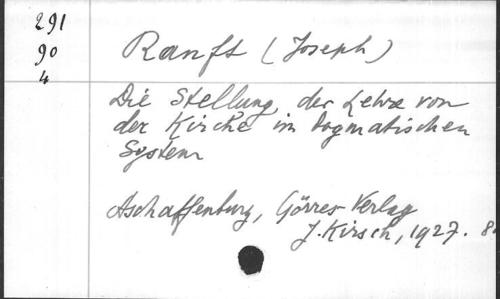 291
90
4
Ranft (Joseph)
Die Stellung der Lehre von
der Kirche im dogmatischen
System
Aschaffenburg, Görres-Verlag
J. Kirsch, 1927. 8